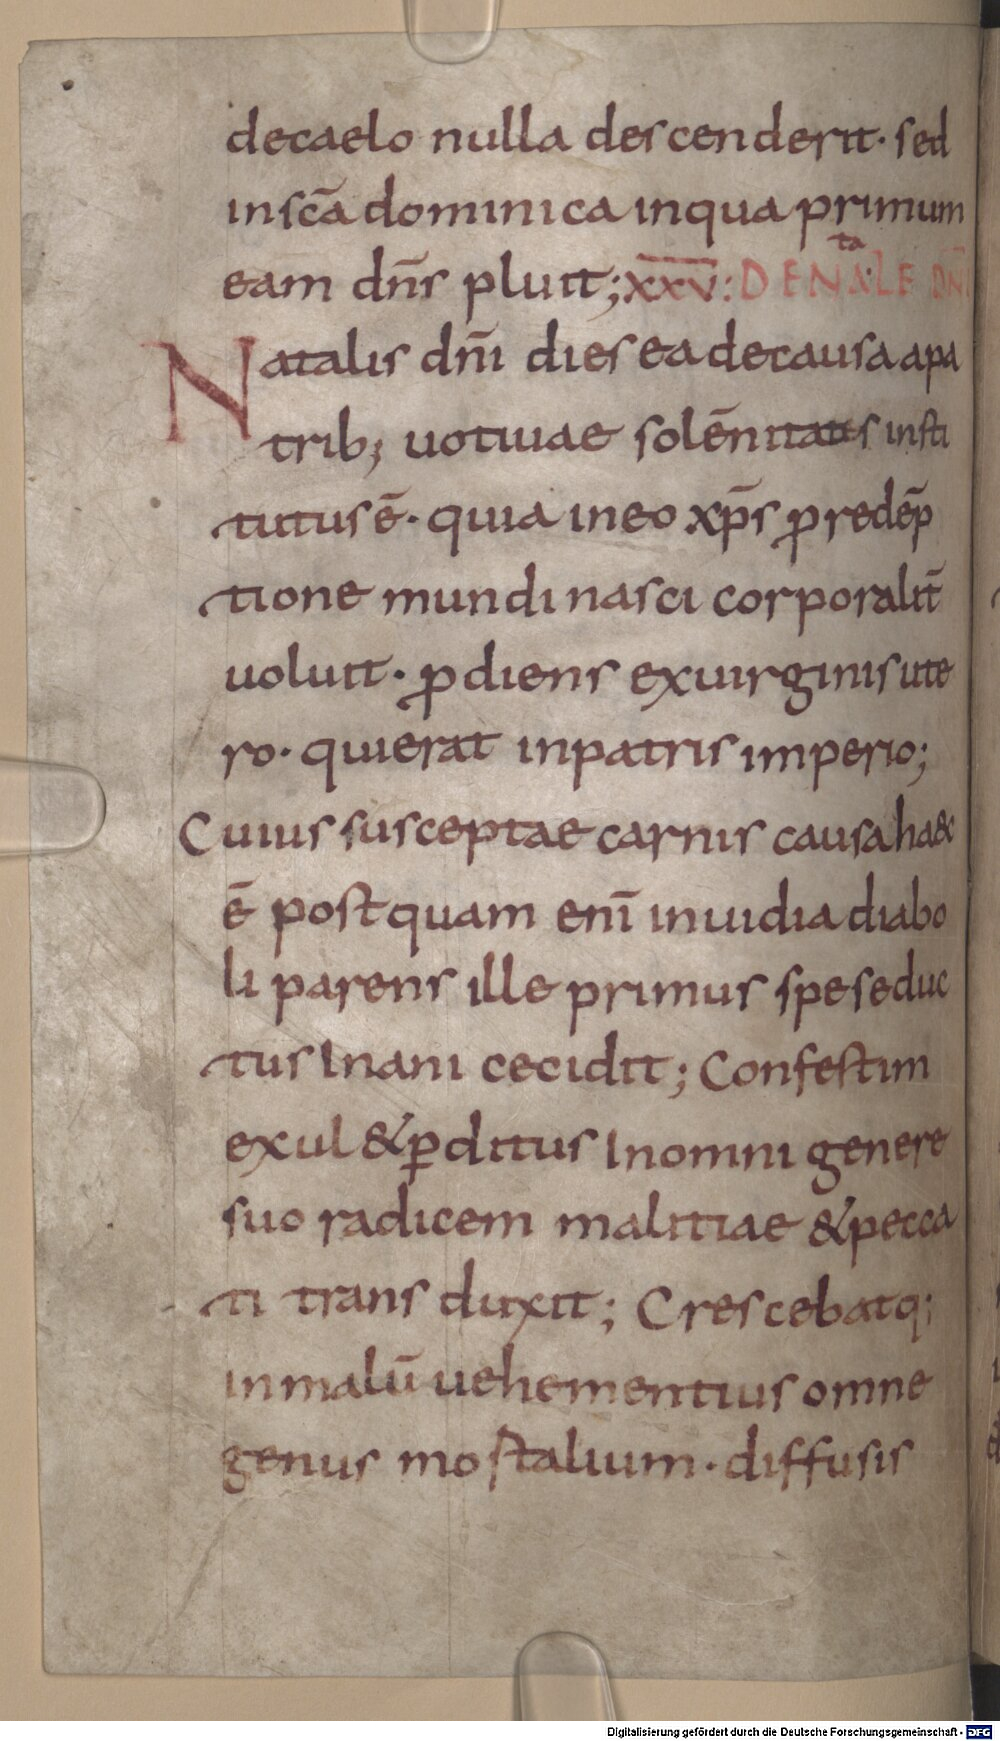 decaelo nulla descenderit· sed
inscā dominica inqua primum
eam dn̄s pluit; XXV: DE NATALE DN̄I
Natalis dn̄i dies ea decausa apa
trib; uotiuae solēnitatis insti
tutus ē· quia ineo xp̄s ꝓ redēp̄
tione mundi nasci corporalit̄
uoluit· ꝓdiens exuirginis ute
ro· quierat inpatris imperio;
Cuius susceptae carnis causa haec
ē postquam enī inuidia diabo
li parens ille primus spe seduc
tus Inani cecidit; Confestim
exul &ꝑditus Inomni genere
suo radicem malitiae &pecca
ti trans duxit; Crescebatq;
inmalū uehementius omne
genus mostalium· diffusis
Digitalisierung gefördert durch die Deutsche Forschungsgemeinschaft - DFG